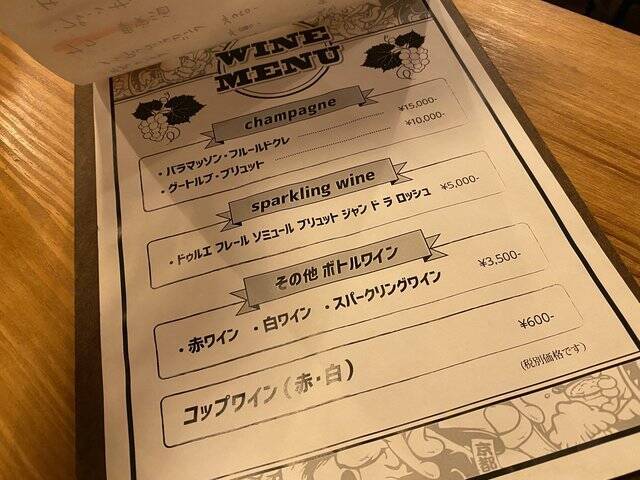 WINE
MENU
champagne
・パラマッソン・フルールドクレ ¥15,000-
・グートルブ・ブリュット ¥10,000-
sparkling wine
・ドゥルエ フレール ソミュール ブリュット ジャン ド ラ ロッシュ ¥5,000-
その他 ボトルワイン
・赤ワイン ・白ワイン ・スパークリングワイン ¥3,500-
コップワイン（赤・白） ¥600-
(税別価格です)
京都